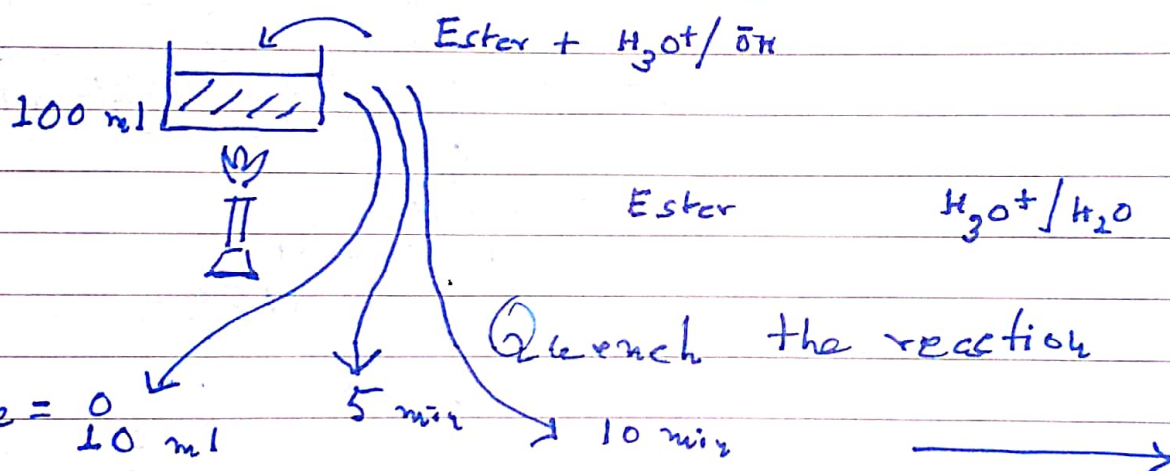 Ester + H₃O⁺/ ōH
100 ml
Ester H₃O⁺/H₂O
Quench the reaction
e = 0 5 min 10 min
10 ml